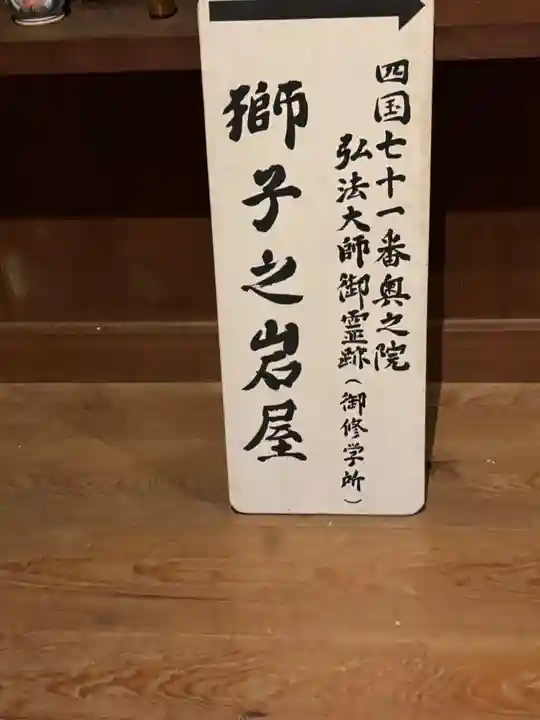 四国七十一番奥之院
弘法大師御霊跡（御修学所）
獅子之岩屋